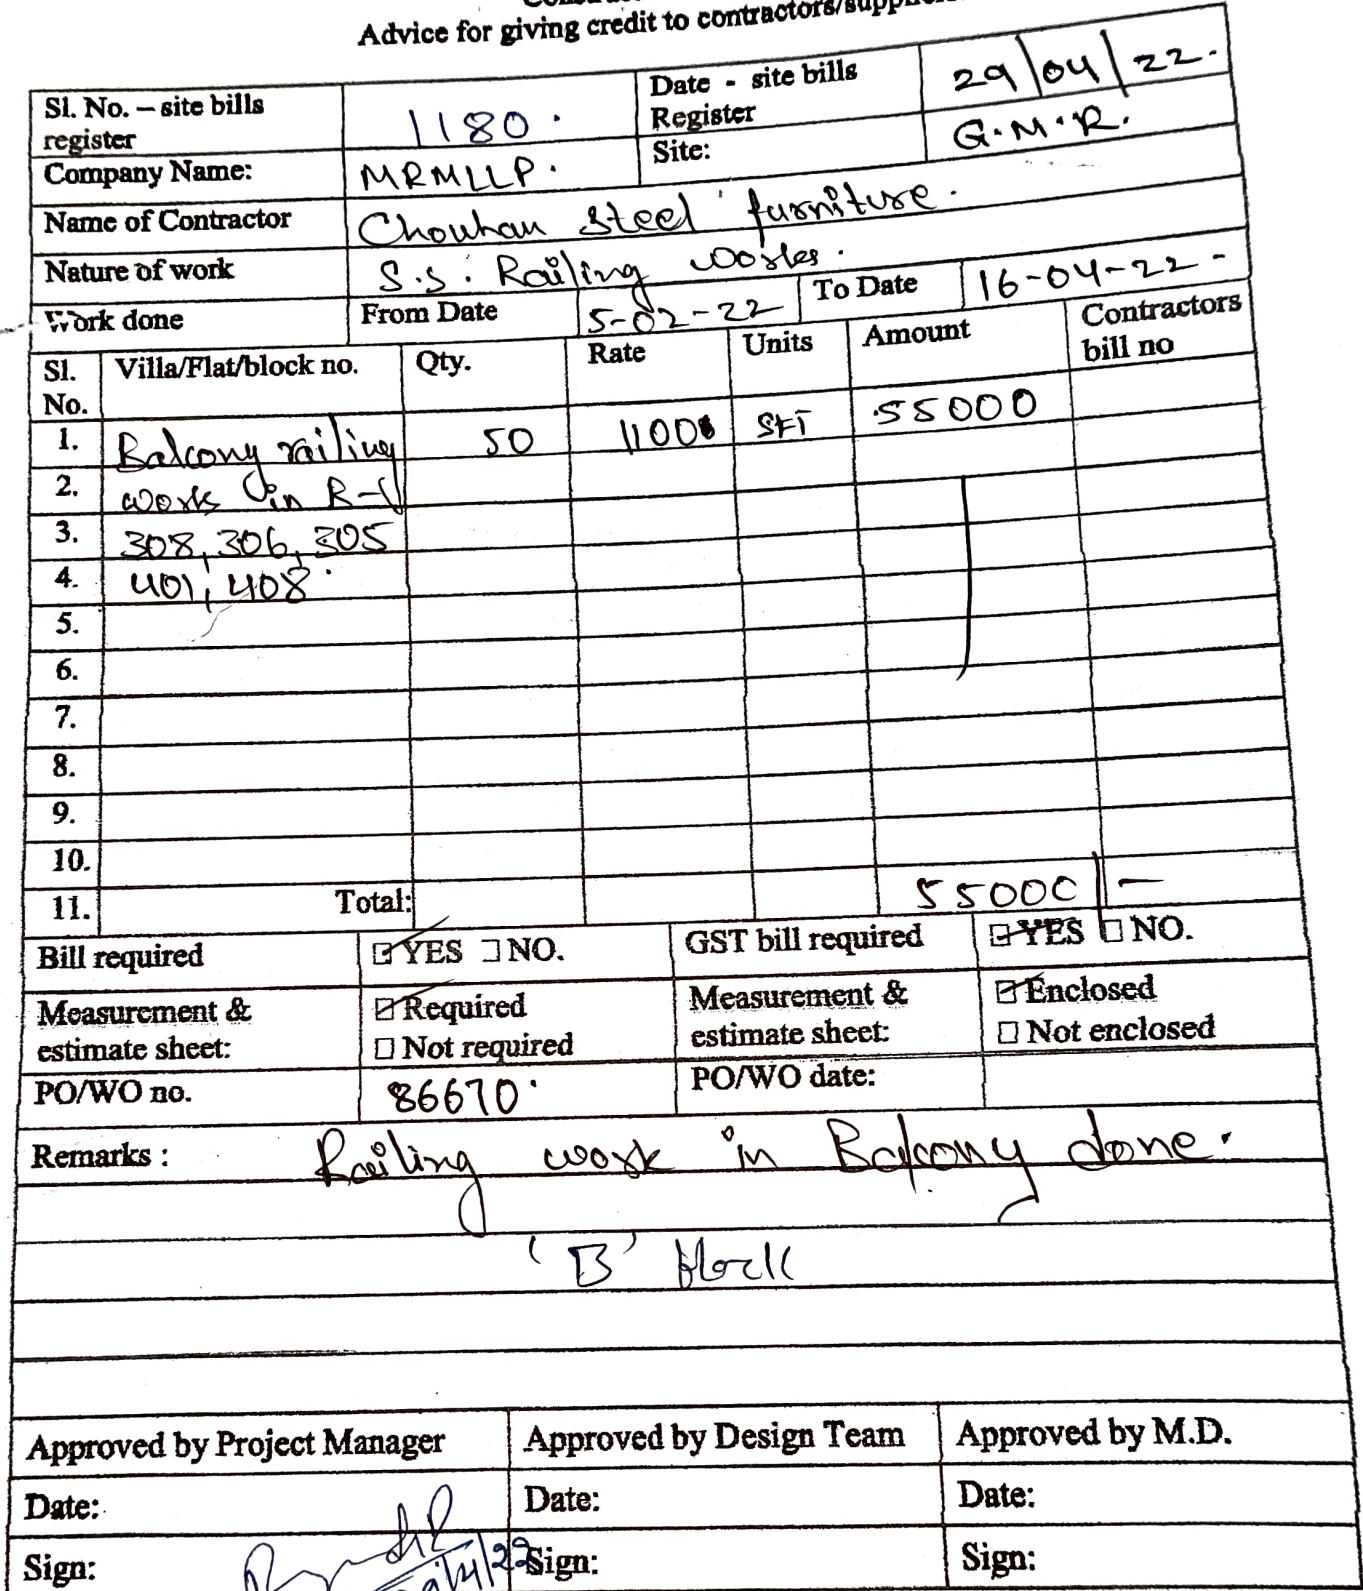 Advice for giving credit to contractors/suppliers
Sl. No. – site bills register 1180. Date - site bills Register 29/04/22.
Company Name: MRMLLP. Site: G.M.R.
Name of Contractor Chouhan Steel furniture.
Nature of work S.S. Railing works.
Work done From Date 5-02-22 To Date 16-04-22-
Sl. No. Villa/Flat/block no. Qty. Rate Units Amount Contractors bill no
1. Balcony railing 50 1100 SFT 55000
2. work in B-
3. 308, 306, 305
4. 401, 408.
5.
6.
7.
8.
9.
10.
11. Total: 55000/-
Bill required YES NO. GST bill required YES NO.
Measurement & estimate sheet: Required Not required Measurement & estimate sheet: Enclosed Not enclosed
PO/WO no. 86670. PO/WO date:
Remarks : Railing work in Balcony done.
'B' block
Approved by Project Manager Approved by Design Team Approved by M.D.
Date: Date: Date:
Sign: Sign: Sign: